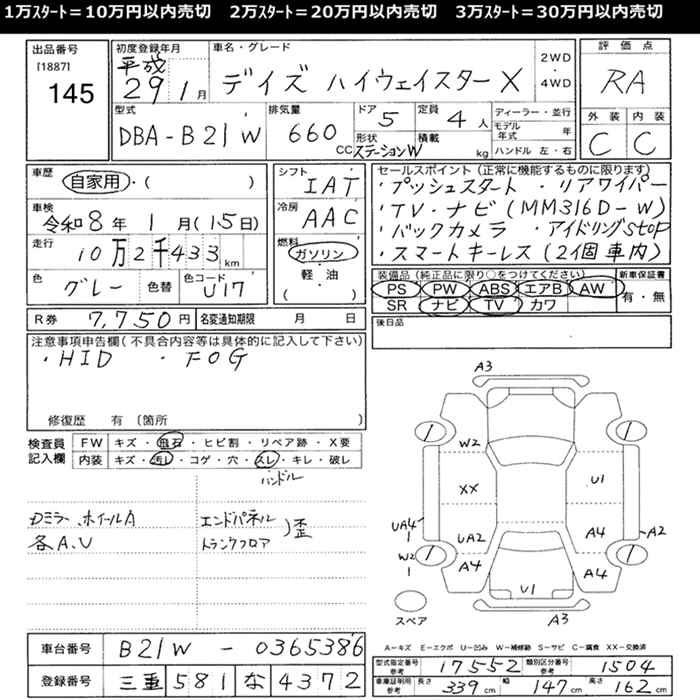 1万ｽﾀｰﾄ＝10万円以内売切　2万ｽﾀｰﾄ＝20万円以内売切　3万ｽﾀｰﾄ＝30万円以内売切
出品番号 [1887] 145
初度登録年月 平成 29 1月
車名・グレード デイズ ハイウェイスターX
2WD・4WD
評価点 RA
外装 C 内装 C
型式 DBA-B21W
排気量 660 CC
ドア 5 形状 ステーションW
定員 4人 積載 kg
ディーラー・並行
モデル年式 年
ハンドル 左・右
車歴 自家用・( )
車検 令和8年 1月(15日)
走行 10万2千433km
色 グレー 色替 色コード U17
シフト IAT
冷房 AAC
燃料 ガソリン
軽・油
( )
セールスポイント（正常に機能するものに限ります）
・プッシュスタート ・リアワイパー
・TV・ナビ(MM316D-W)
・バックカメラ ・アイドリングstop
・スマートキーレス(2個車内)
装備品（純正品に限り○をつけてください） 新車保証書
PS PW ABS エアB AW 有・無
SR ナビ TV カワ
後日品
R券 7,750円 名変通知期限 月 日
注意事項申告欄（不具合内容等は具体的に記入して下さい）
・HID ・FOG
修復歴 有〔箇所
検査員記入欄 FW キズ・飛石・ヒビ割・リペア跡・X要
内装 キズ・汚レ・コゲ・穴・スレ・キレ・破レ
ハンドル
Dミラー、ホイールA エンドパネル
各A、U トランクフロア )歪
A3
W2
XX U1
UA4 1 UA2 A4 A2
W2 1 A4 A4
U1
スペア A3
A－キズ E－エクボ U－凹み W－補修跡 S－サビ C－腐食 XX－交換済
車台番号 B21W - 0365386
登録番号 三重 581 な 4372
型式指定番号 参考 17552 類別区分番号 参考 1504
車庫証明用 参考 長さ 339cm 幅 147cm 高さ 162cm